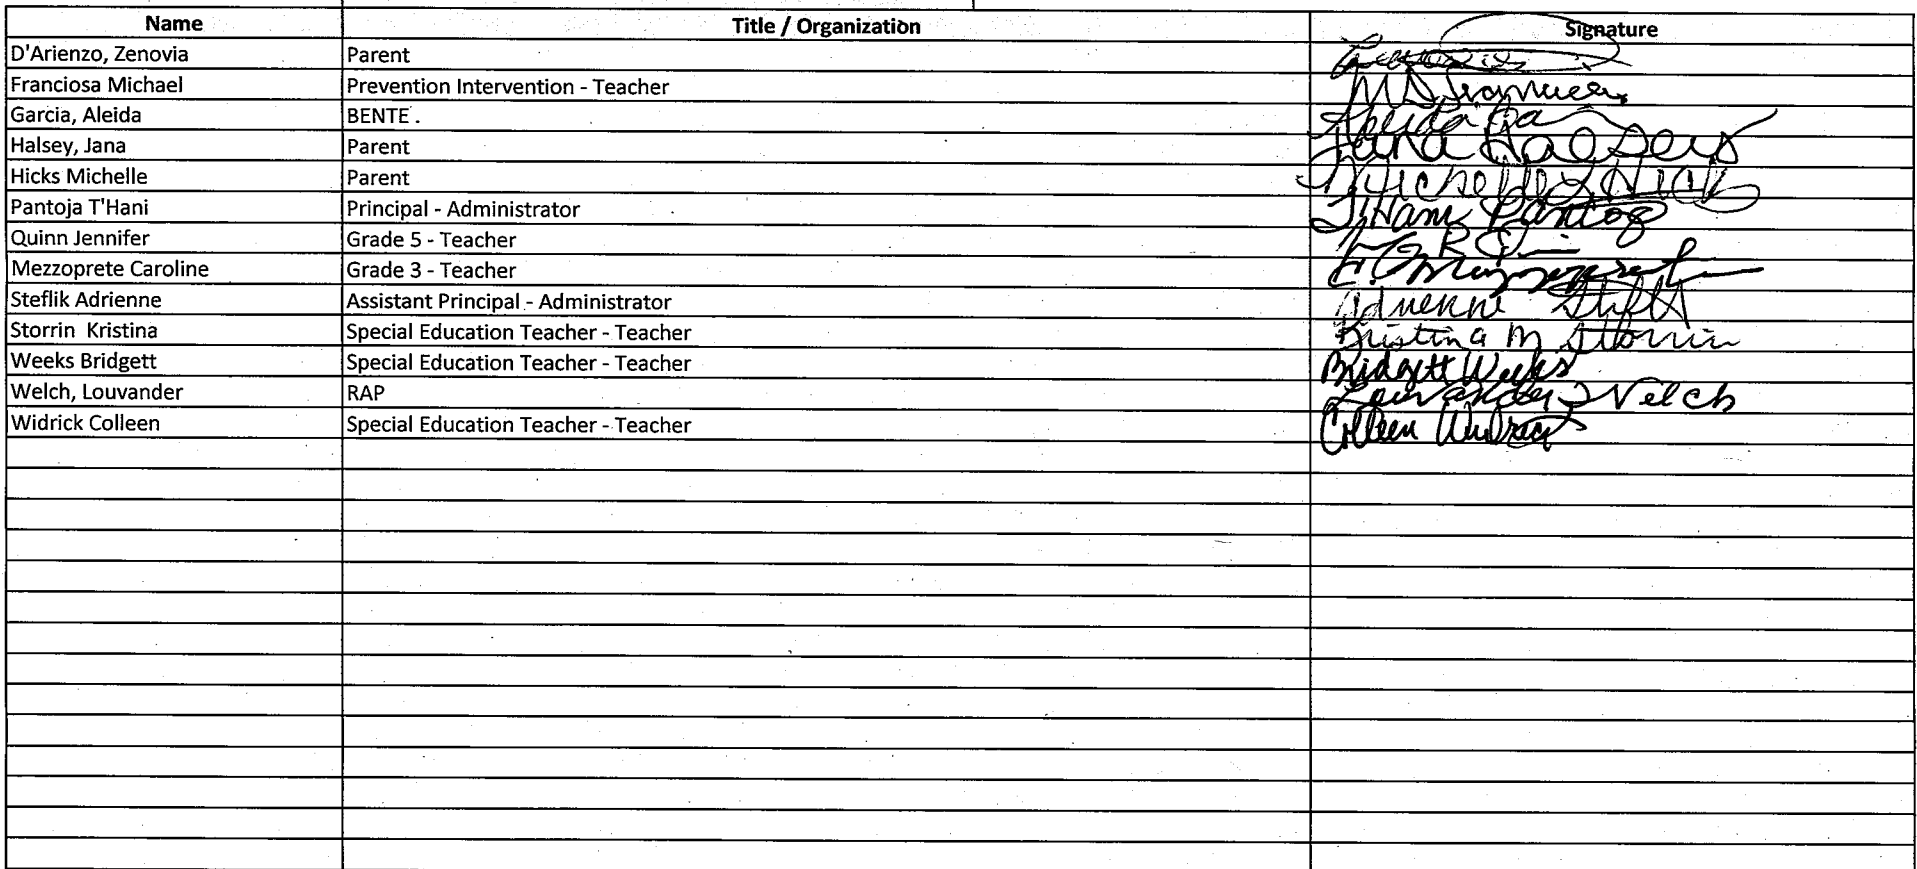 Name Title / Organization Signature
D'Arienzo, Zenovia Parent
Franciosa Michael Prevention Intervention - Teacher
Garcia, Aleida BENTE . Aleida
Halsey, Jana Parent Jana Halsey
Hicks Michelle Parent Michelle Hicks
Pantoja T'Hani Principal - Administrator T'Hani Pantoja
Quinn Jennifer Grade 5 - Teacher
Mezzoprete Caroline Grade 3 - Teacher
Steflik Adrienne Assistant Principal - Administrator Adrienne
Storrin Kristina Special Education Teacher - Teacher Kristina M Storrin
Weeks Bridgett Special Education Teacher - Teacher Bridgett Weeks
Welch, Louvander RAP Louvander Welch
Widrick Colleen Special Education Teacher - Teacher Colleen Widrick